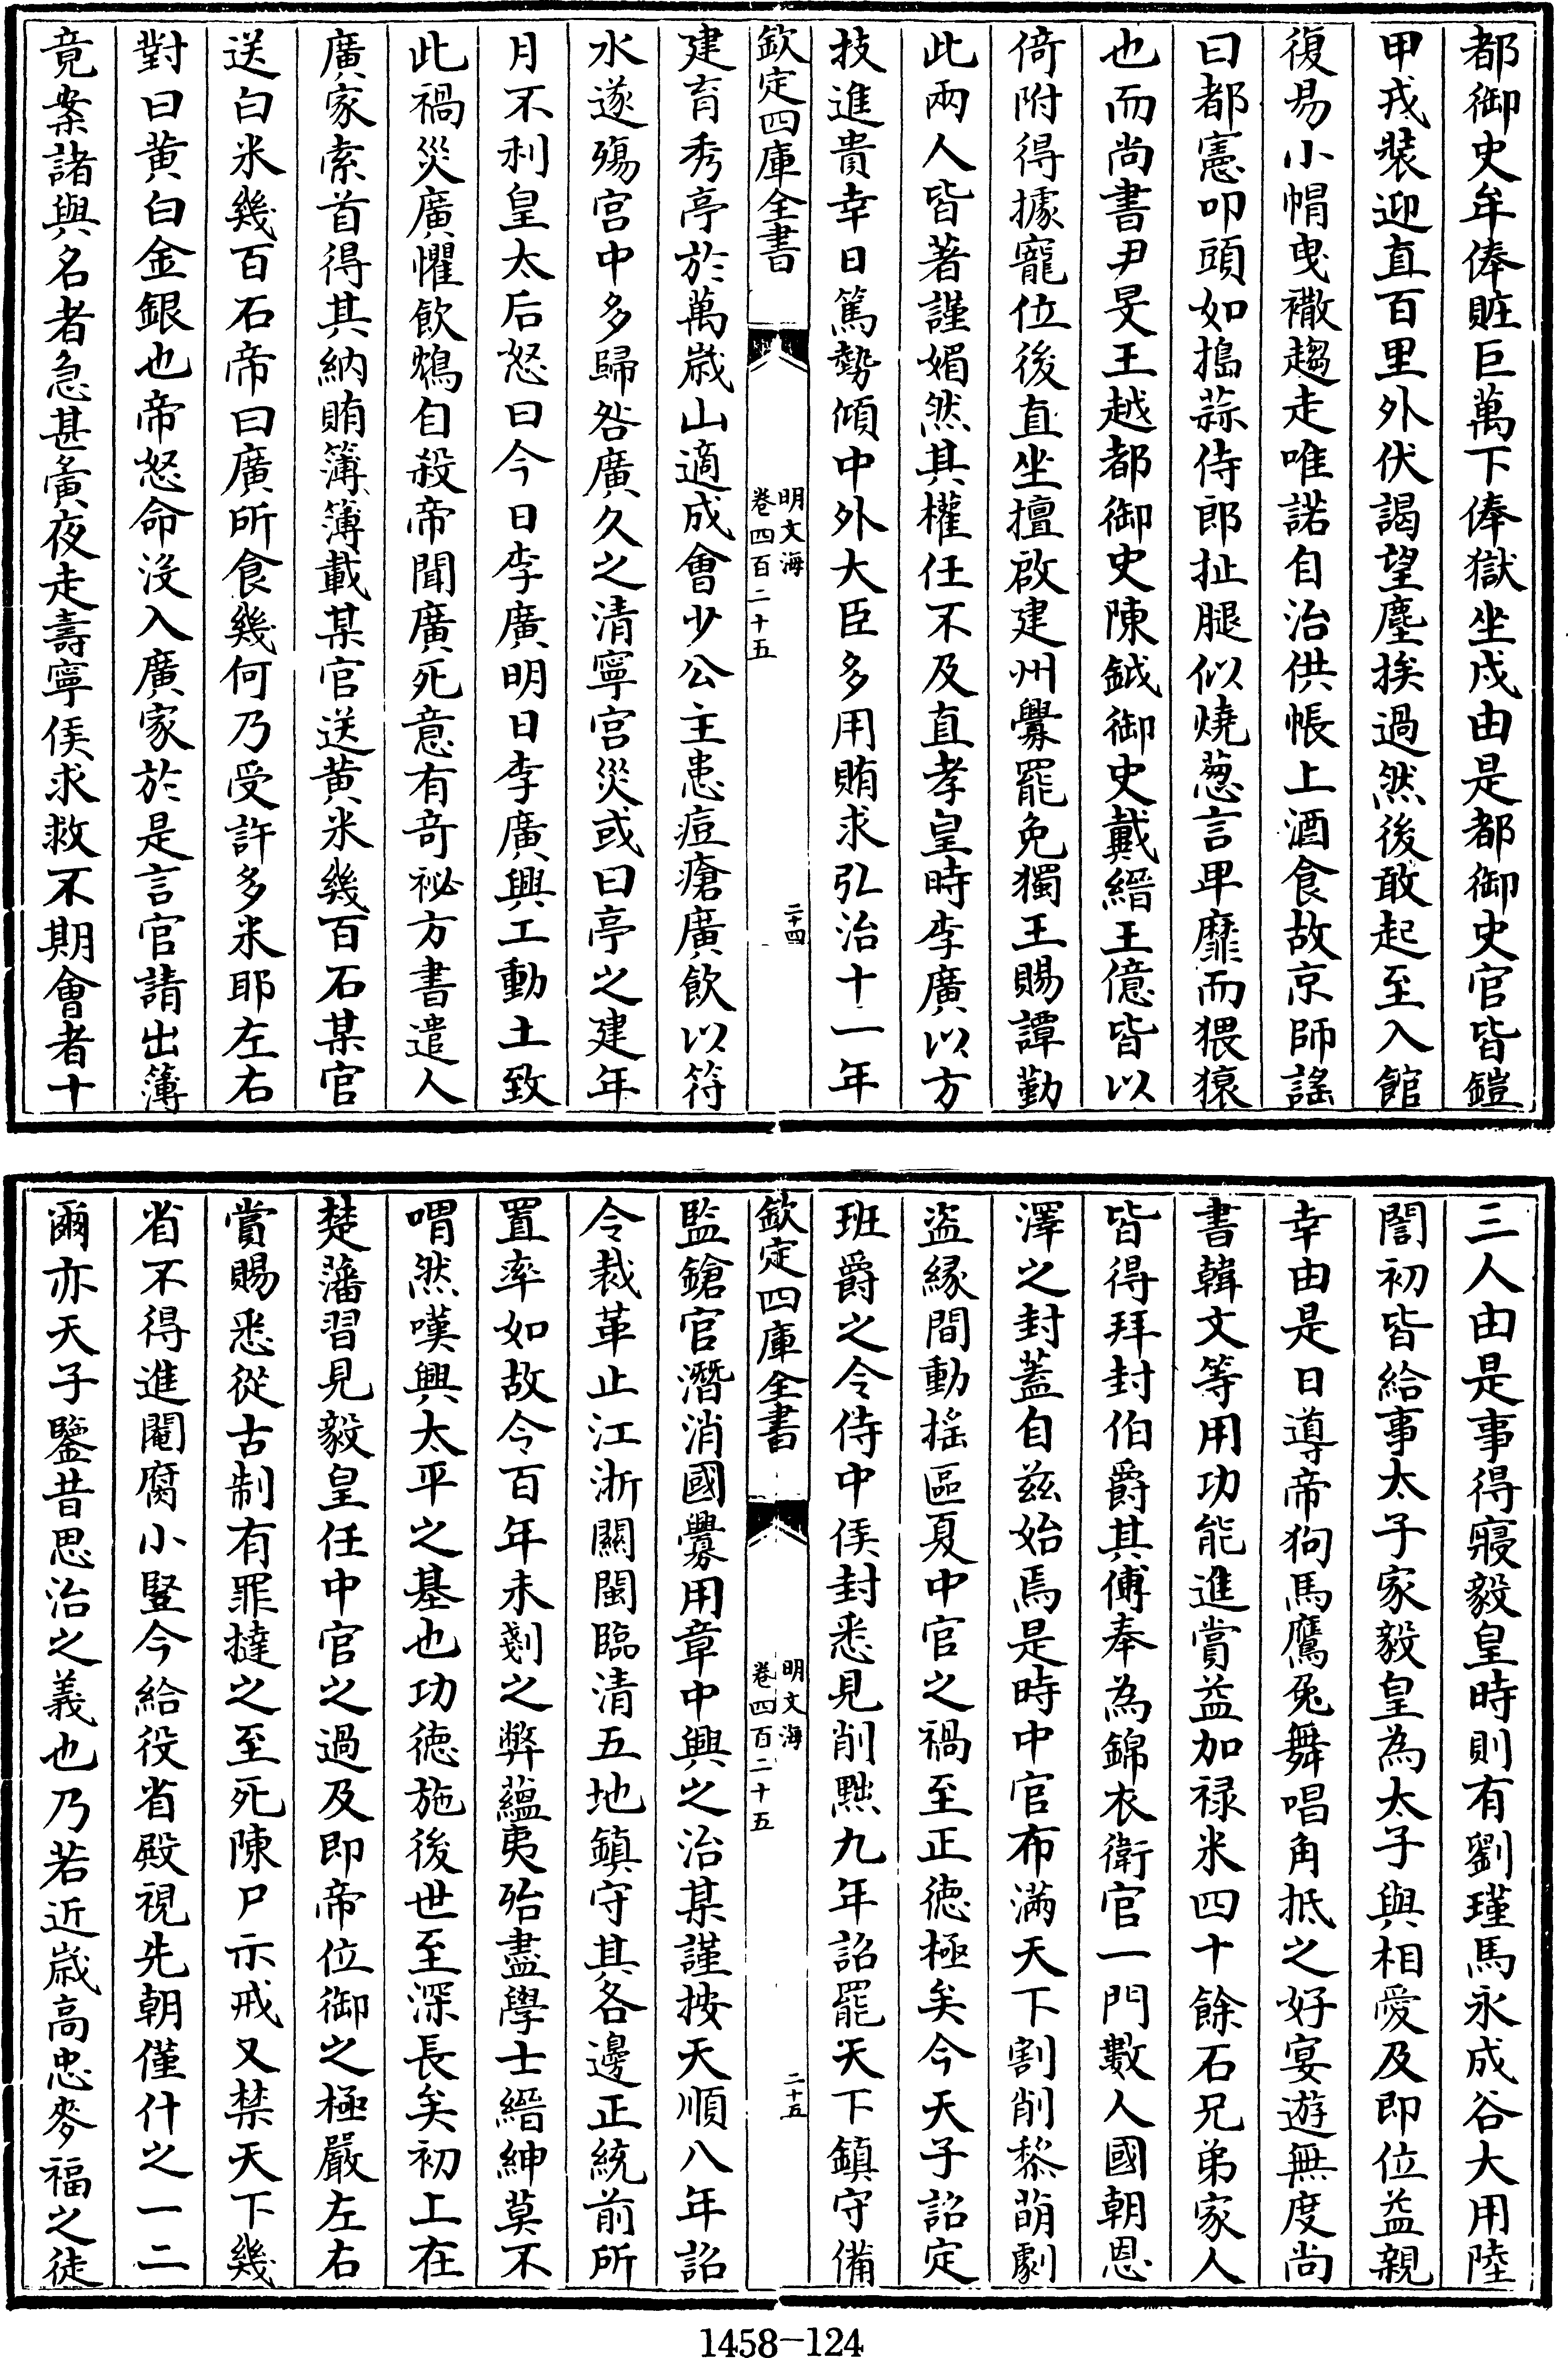 都御史牟俸贓巨萬下俸獄坐戍由是都御史官皆鎧
甲戎裝迎直百里外伏謁望塵挨過然後敢起至入館
復易小帽曳𧞤趨走唯諾自治供帳上酒食故京師謡
曰都憲叩頭如搗蒜侍郎扯腿似燒葱言卑靡而猥猿
也而尚書尹旻王越都御史陳鉞御史戴縉王億皆以
倚附得據寵位後直坐擅啟建州釁罷免獨王賜譚勤
此兩人皆著謹媚然其權任不及直孝皇時李廣以方
技進貴幸日篤勢傾中外大臣多用賄求弘治十一年
欽定四庫全書
明文海
卷四百二十五
二十四
建育秀亭於萬歲山適成會少公主患痘瘡廣飲以符
水遂殤宫中多歸咎廣久之清寧宫災或曰亭之建年
月不利皇太后怒曰今日李廣明日李廣興工動土致
此禍災廣懼飲鴆自殺帝聞廣死意有奇祕方書遣人
廣家索首得其納賄簿簿載某官送黄米幾百石某官
送白米幾百石帝曰廣所食幾何乃受許多米耶左右
對曰黄白金銀也帝怒命沒入廣家於是言官請出簿
竟案諸與名者急甚夤夜走壽寧侯求救不期會者十
三人由是事得寢毅皇時則有劉瑾馬永成谷大用陸
誾初皆給事太子家毅皇為太子與相愛及即位益親
幸由是日導帝狗馬鷹兎舞唱角抵之好宴遊無度尚
書韓文等用功能進賞益加禄米四十餘石兄弟家人
皆得拜封伯爵其傅奉為錦衣衛官一門數人國朝恩
澤之封蓋自兹始焉是時中官布滿天下割削黎萌劇
盜縁間動搖區夏中官之禍至正徳極矣今天子詔定
班爵之令侍中侯封悉見削黜九年詔罷天下鎮守備
欽定四庫全書
明文海
卷四百二十五
二十五
監鎗官潛消國釁用章中興之治某謹按天順八年詔
令裁革止江浙關閩臨清五地鎮守其各邊正統前所
置率如故今百年未剗之弊蘊夷殆盡學士縉紳莫不
喟然嘆興太平之基也功徳施後世至深長矣初上在
楚藩習見毅皇任中官之過及即帝位御之極嚴左右
賞賜悉從古制有罪撻之至死陳尸示戒又禁天下幾
省不得進閹腐小豎今給役省殿視先朝僅什之一二
爾亦天子鑒昔思治之義也乃若近歲高忠麥福之徒
1458-124